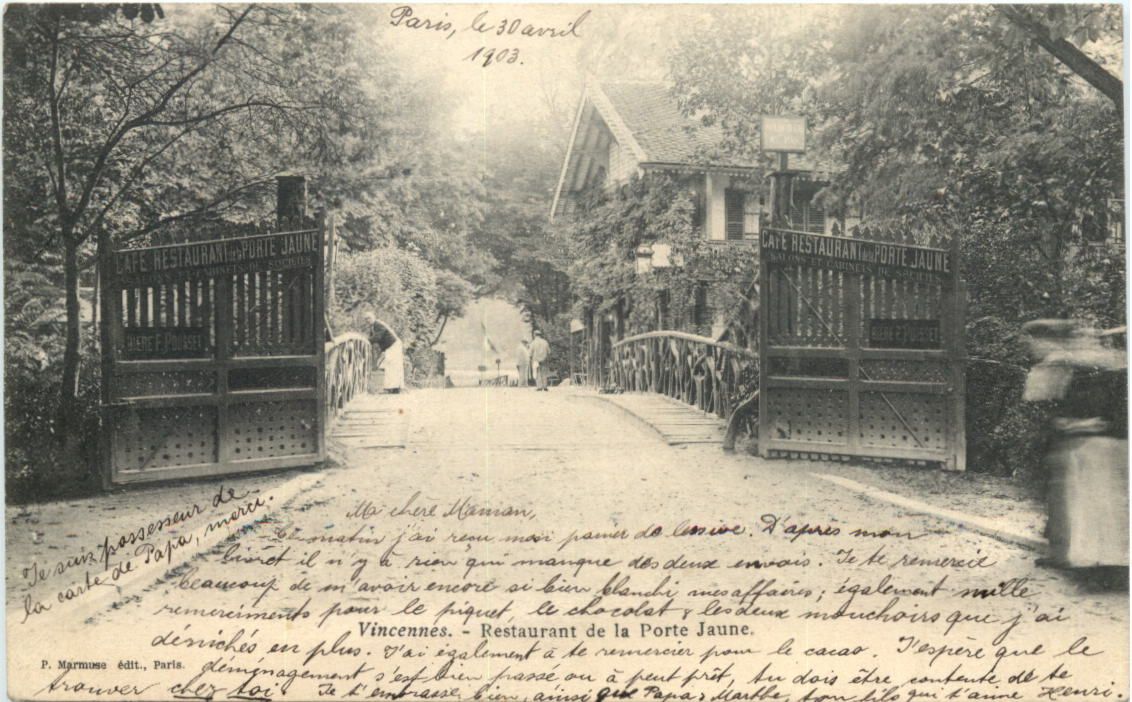 Paris, le 30 avril
1903.
CAFÉ RESTAURANT DE LA PORTE JAUNE
BIÈRE F. POUSSET
CAFÉ RESTAURANT DE LA PORTE JAUNE
BIÈRE F. POUSSET
Je suis possesseur de
la carte de Papa, merci.
Ma chère Maman,
Ce matin j'ai reçu mon panier de lessive. D'après mon
livret il n'y a rien qui manque des deux envois. Je te remercie
beaucoup de m'avoir encore si bien blanchi mes affaires; également mille
remerciments pour le piquet, le chocolat & les deux mouchoirs que j'ai
Vincennes. - Restaurant de la Porte Jaune.
dénichés en plus. J'ai également à te remercier pour le cacao. J'espère que le
P. Marmuse édit., Paris.
déménagement s'est bien passé ou à peut prêt, tu dois être contente de te
trouver chez toi. Je t'embrasse bien, ainsi que Papa & Marthe, ton fils qui t'aime Henri.